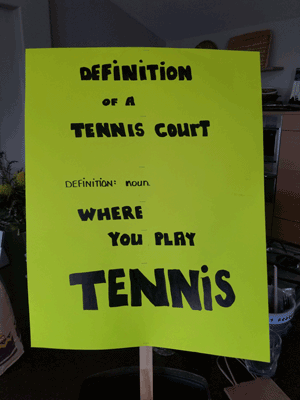 DEFINITION
OF A
TENNIS COURT
DEFINITION: noun
WHERE
YOU PLAY
TENNIS